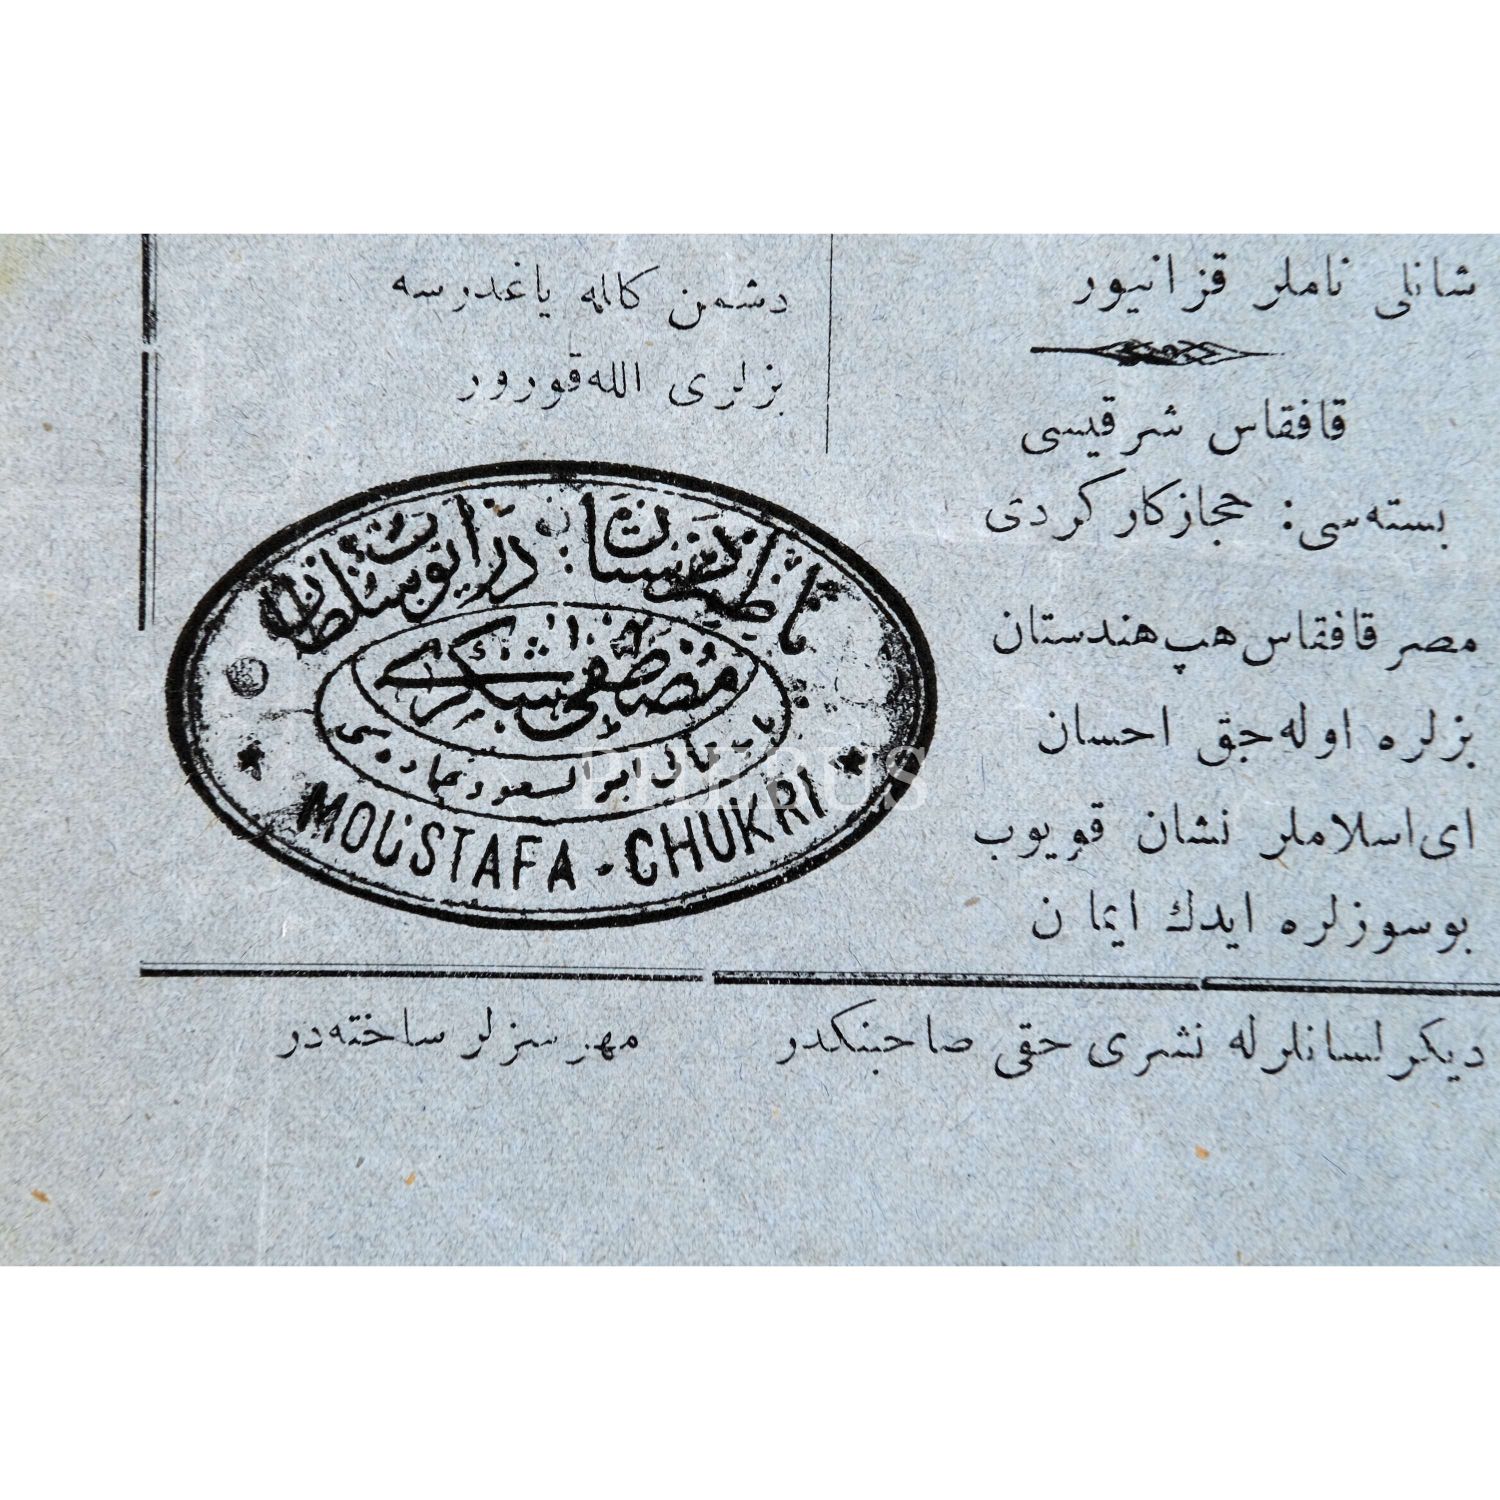 شانلی ناملر قزانیور
قافقاس شرقیسی
بسته‌سی: حجازکار کردی
مصر قافقاس هپ هندستان
بزلره اوله‌جق احسان
ای اسلاملر نشان قویوب
بو سوزلره ایدك ایمان
دشمن کلله یاغدرسه
بزلری الله قورور
مصطفی شکری
باب عالی ابو السعود جاده‌سی
MOUSTAFA - CHUKRI
PHEBUS
دیکر لسانلرله نشری حقی صاحبنکدر
مهرسزلر ساخته‌در